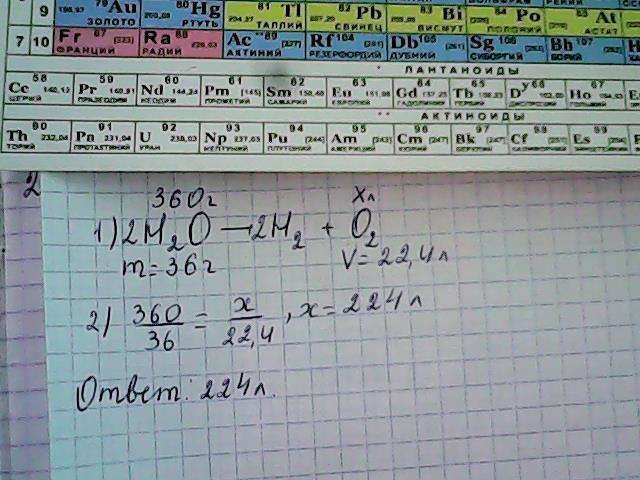 79 Au 196,97 80 Hg 200,59 81 Tl 204,37 82 Pb 83 Bi 84 Po 85 At
9 ЗОЛОТО РТУТЬ ТАЛЛИЙ СВИНЕЦ ВИСМУТ ПОЛОНИЙ АСТАТ
7 10 Fr 87 [223] Ra 88 226,03 Ac 89 [227] Rf 104 [261] Db 105 Sg 106 Bh 107
ФРАНЦИЙ РАДИЙ АКТИНИЙ РЕЗЕРФОРДИЙ ДУБНИЙ СИБОРГИЙ БОРИЙ
ЛАНТАНОИДЫ
58 59 60 61 62 63 64 65 66 67
Ce 140,12 Pr 140,91 Nd 144,24 Pm [145] Sm Eu Gd Tb Dy Ho
ЦЕРИЙ ПРАЗЕОДИМ НЕОДИМ ПРОМЕТИЙ САМАРИЙ ЕВРОПИЙ ГАДОЛИНИЙ ТЕРБИЙ
АКТИНОИДЫ
90 91 92 93 94 95 96 97 98 99
Th 232,04 Pa 231,04 U 238,03 Np 237,05 Pu [244] Am [243] Cm [247] Bk [247] Cf [251] Es
ТОРИЙ ПРОТАКТИНИЙ УРАН НЕПТУНИЙ ПЛУТОНИЙ АМЕРИЦИЙ КЮРИЙ БЕРКЛИЙ
2
360г xл
1) 2H₂O → 2H₂ + O₂
m = 36г V = 22,4л
2) 360/36 = x/22,4, x = 224л
Ответ: 224л.